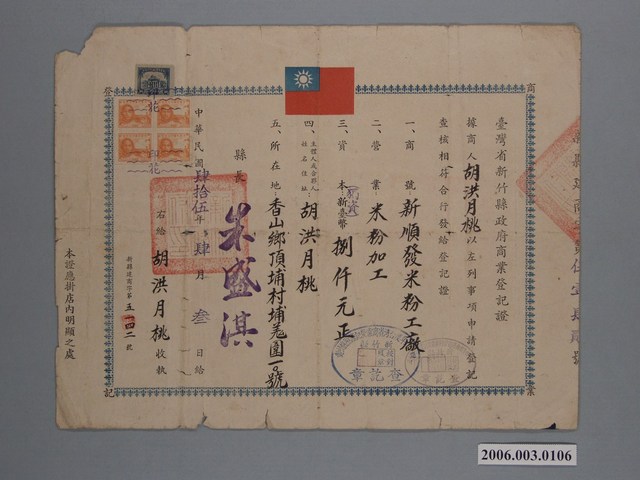 臺灣省新竹縣政府商業登記證
據商人胡洪月桃以左列事項申請登記
查核相符合行發給登記證
一、商號：新順發米粉工廠
二、營業：米粉加工
三、資本新臺幣捌仟元正
四、主體人或合夥人姓名住址：胡洪月桃
五、所在地：香山鄉頂埔村埔羌圍一〇號
縣長
朱盛淇
中華民國肆拾伍年肆月叁日給
右給胡洪月桃收執
新縣建商際第五一四二號
本證應掛店內明顯之處
商
業
登
記
查記章
2006.003.0106